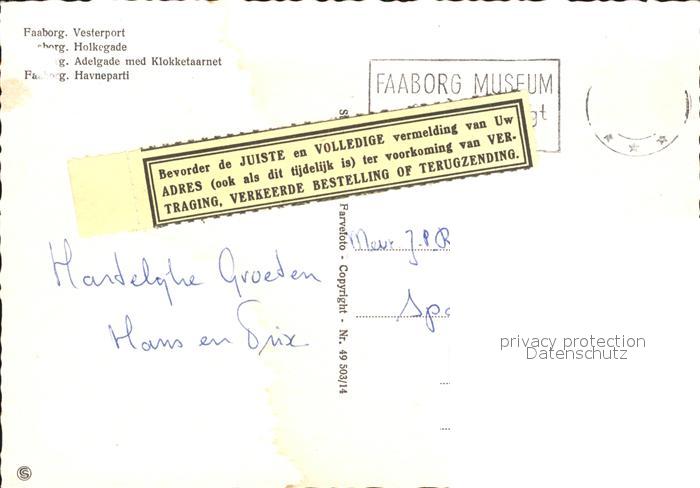 Faaborg. Vesterport
borg. Holkegade
g. Adelgade med Klokketaarnet
Fa org. Havneparti
FAABORG MUSEUM
gt
Bevorder de JUISTE en VOLLEDIGE vermelding van Uw
ADRES (ook als dit tijdelijk is) ter voorkoming van VER-
TRAGING, VERKEERDE BESTELLING OF TERUGZENDING.
Farvefoto - Copyright - Nr. 49 503/14
Hartelijke Groeten
Hans en Trix
Mevr J.P.R
Spa
privacy protection
Datenschutz